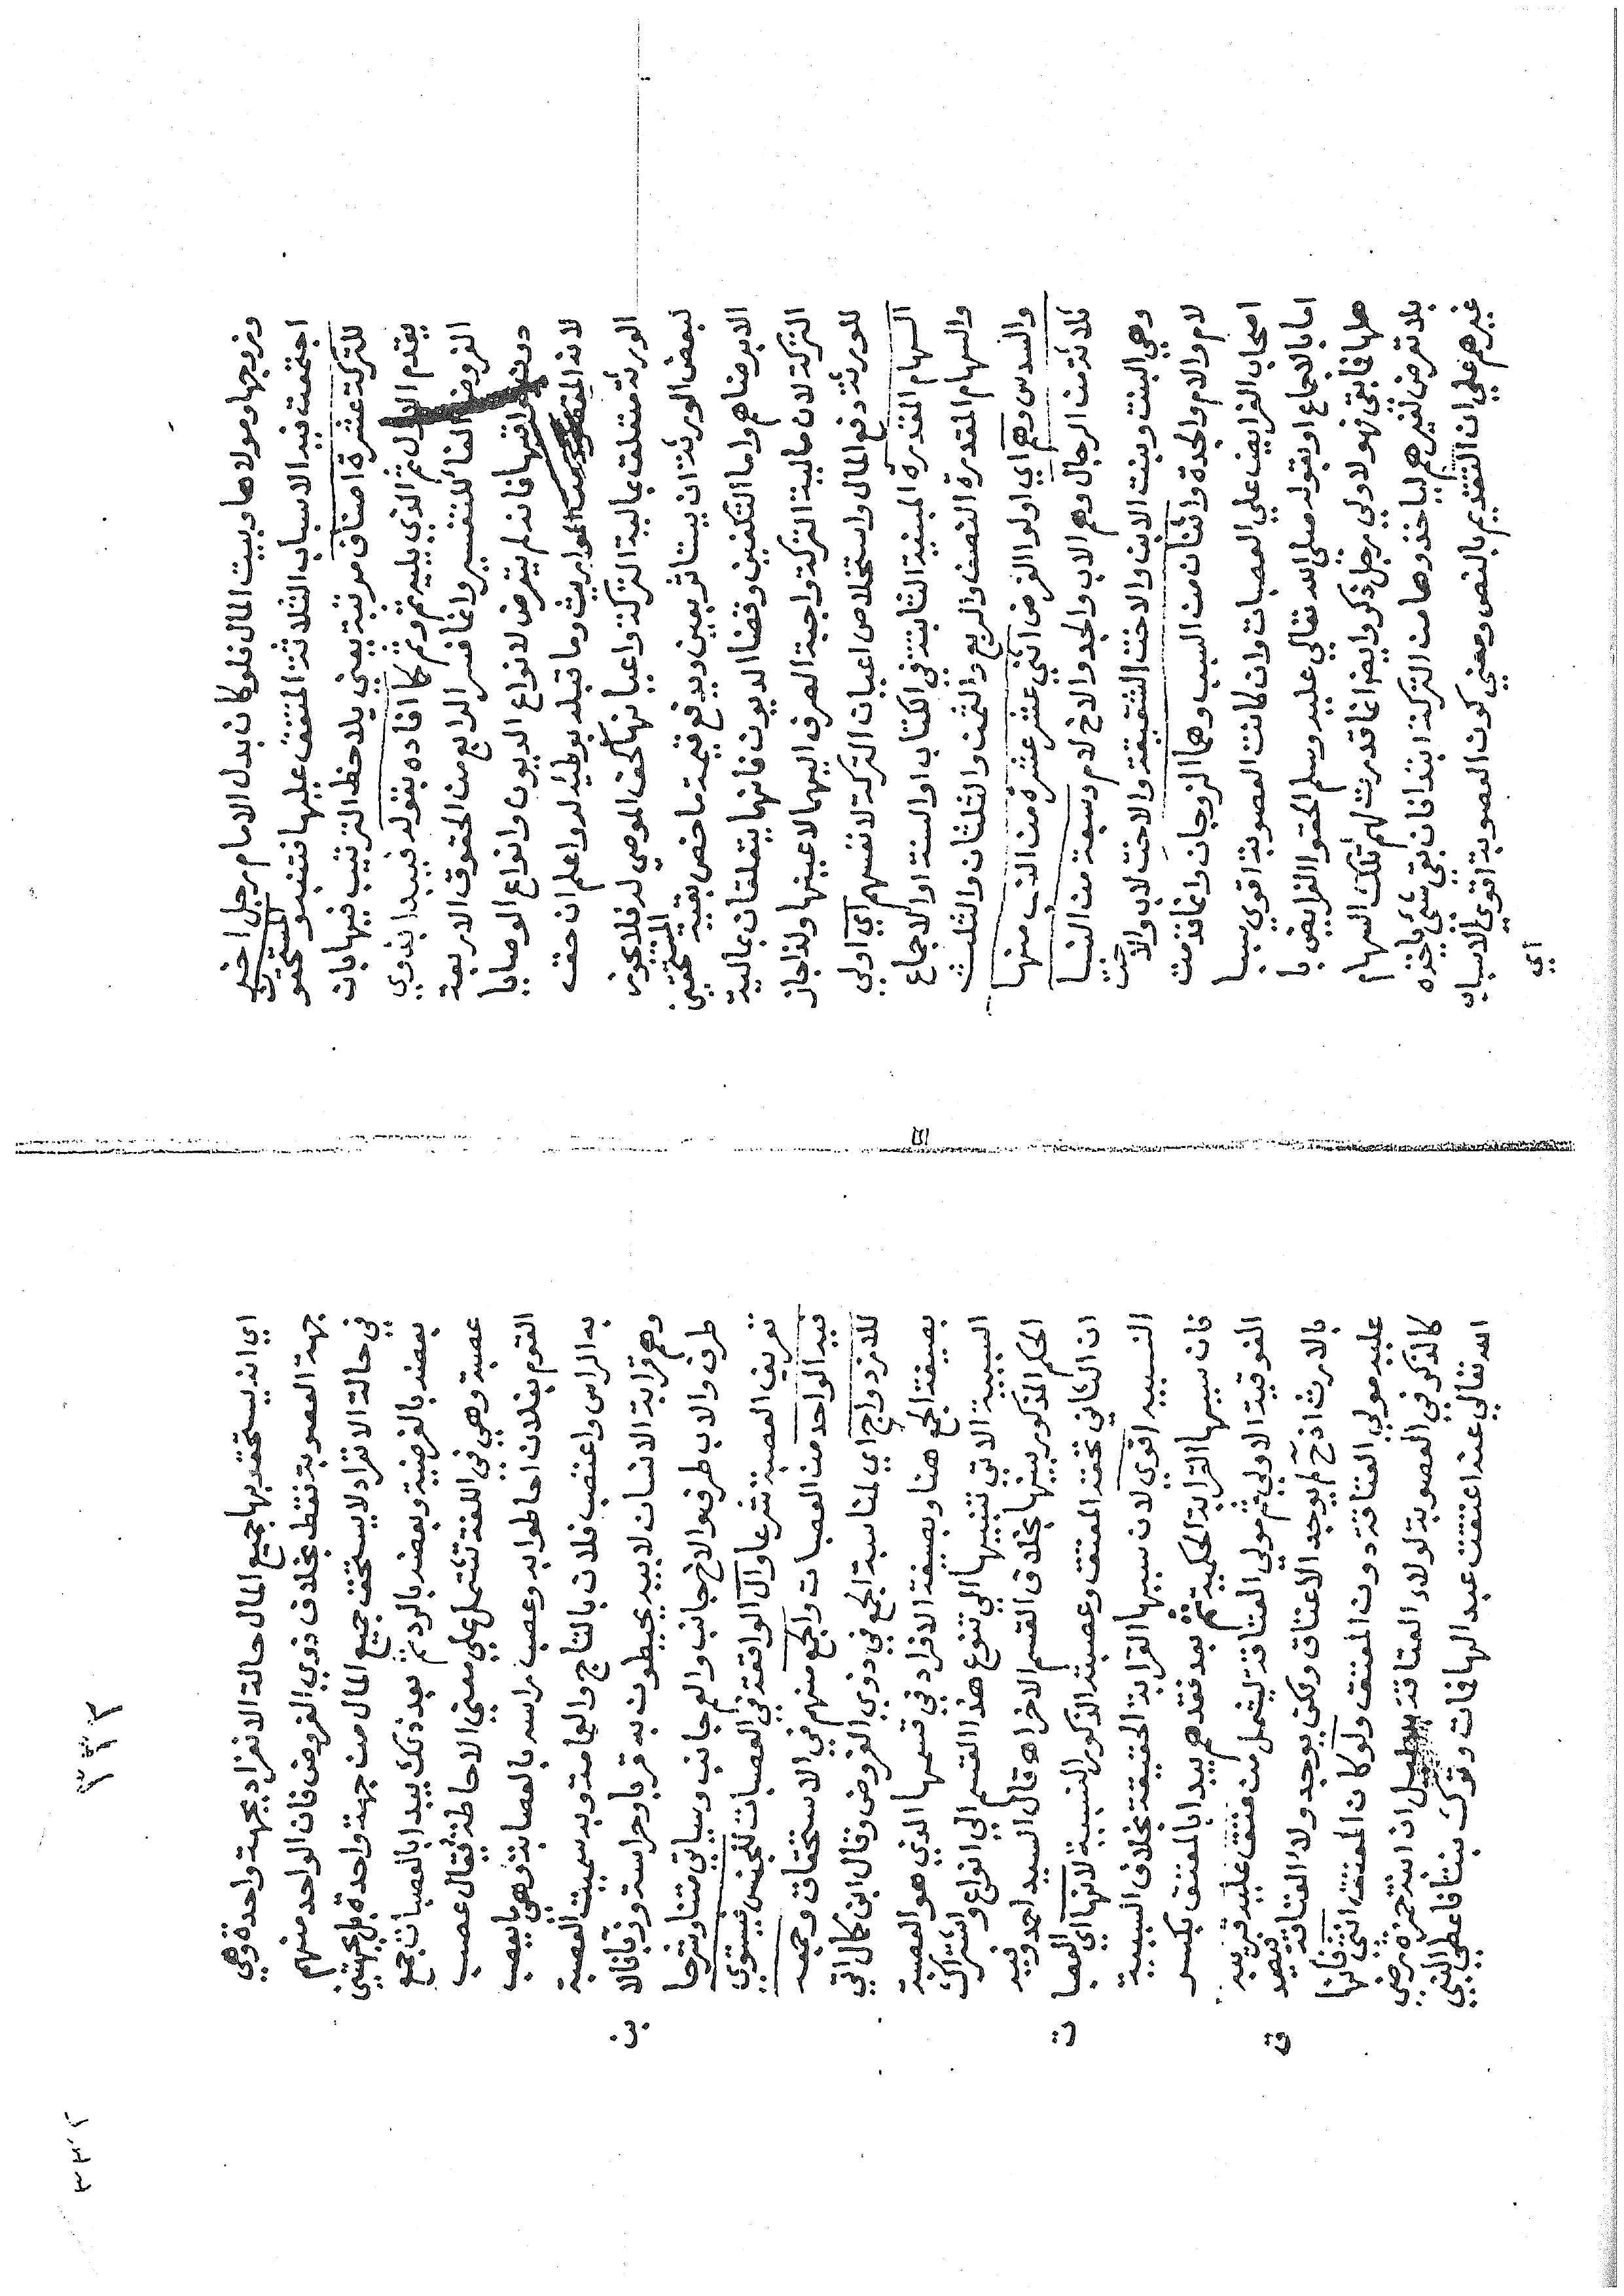 وزوجها ومولاها وبيت المال فلو كان بدل الامام رجل اخر
اجتمعت فيه الاسباب الثلاثة المتفق عليها فتنبه المستحقون
للتركة عشرة اصناف مرتبة يعني يلاحظ الترتيب فيها بان
يقدم الاول ثم الذي يليه ثم وثم كما افاده بقوله فيبدا بذوي
الفروض الفا للتفسير وانما فسر الرابع من الحقوق الاربعة
دون فانه لم يتعرض لانواع الديون وانواع الوصايا
لانه المقصود المواريث وما قبله توطئة له واعلم ان حق
الورثة متعلق بمالية التركة واعيانها كحق الموصي له فلا يجوز
لبعض الورثة ان يستاثر بعين ويدفع قيمة ما خص بقية المستحقين
الا برضاهم واما التكفين وقضا الديون فانهما يتعلقان بمالية
التركة لان مالية التركة واجبة الصرف اليهما لا عينها ولذا جاز
للورثة دفع المال واستخلاص اعيان التركة لانفسهم اي اولي
السهام المقدرة المبينة الثابتة في الكتاب او السنة او الاجماع
والسهام المقدرة النصف والربع والثمن والثلثان والثلث
والسدس وهم اي اولوا الفرض اثني عشر عشرة من النسب منها
ثلاثة من الرجال وهم الاب والجد والاخ لام وسبعة من النسا
وهي البنت وبنت الابن والاخت الشقيقة والاخت لاب والاخت
لام والام والجدة واثنان من السبب وهما الزوجان وانما قدمت
اصحاب الفرايض علي العصبات وان كانت العصوبة اقوي سببا
اما بالاجماع او بقوله صلي الله تعالي عليه وسلم الحقوا الفرايض با
هلها فما بقي فهو لاولي رجل ذكر وايضا انما قدرت لهم تلك السهام
بلا تعرض لغيرهم لياخذوها من التركة ابتدا فان بقي شي ياخذه
غيرهم علي ان التقديم بالنص ومعني كون العصوبة اقوي الاسباب
اي
اي انه يستحق بها جميع المال حالة الانفراد بجهة واحدة وهي
جهة العصوبة فقط بخلاف ذوي الفروض فان الواحد منهم
في حالة الانفراد لا يستحق جميع المال من جهة واحدة بل بجهتين
بعضه بالفرضية وبعضه بالرد ثم بعد ذلك يبدا بالعصبات جمع
عصبة وهي في اللغة تشتمل علي معني الاحاطة فيقال عصب
القوم بفلان احاطوا به وعصب راسه بالعصابة وهي ما يعصب
به الراس واعتصب فلان بالتاج والعمامة وبه سميت العصبة
وهم قرابة الانسان لابيه يحيطون به قربا وحراسة وذبا فالابن
طرف والاب طرف والاخ جانب والعم جانب وسياتي متنا وشرحا
تعريف العصبة شرعا وال الواقعة في العصبات للجنس فيستوي
فيه الواحد من العصبات والجمع منهم في الاستحقاق وجمعه
للازدواج اي لمناسبة الجمع في ذوي الفروض وقال ابن كمال اتي
بصيغة الجمع هنا وبصيغة الافراد في قسمها الذي هو العصبة
السببية الاتي تنبيها الي تنوع هذا القسم الي انواع واشتراك
الحكم المذكور بينها بخلاف القسم الاخر اه قال السيد احمد وفيه
ان الثاني تحته المعتق وعصبته الذكور النسبية لانها اي العصبات
النسبية اقوي لان سببها القرابة الحقيقة بخلاف السببية
فان سببها القرابة الحكمية ثم بعد فقدهم يبدا بالمعتق بكسر
الفوقية الاولي ثم مولي العتاقة ليشمل من عتق عليه قريبه
بالارث اذ ح لم يوجد الاعتاق ولكن يوجد ولاء العتاقة فيصدق
عليه مولي العتاقة دون المعتق ولو كان المعتق انثي فانها
كالذكر في العصوبة لولاء العتاقة ان ابنة حمزة رضي
الله تعالي عنه اعتقت عبدا لها فمات وترك بنتا فاعطي النبي
٢٣٢
٢٣٢